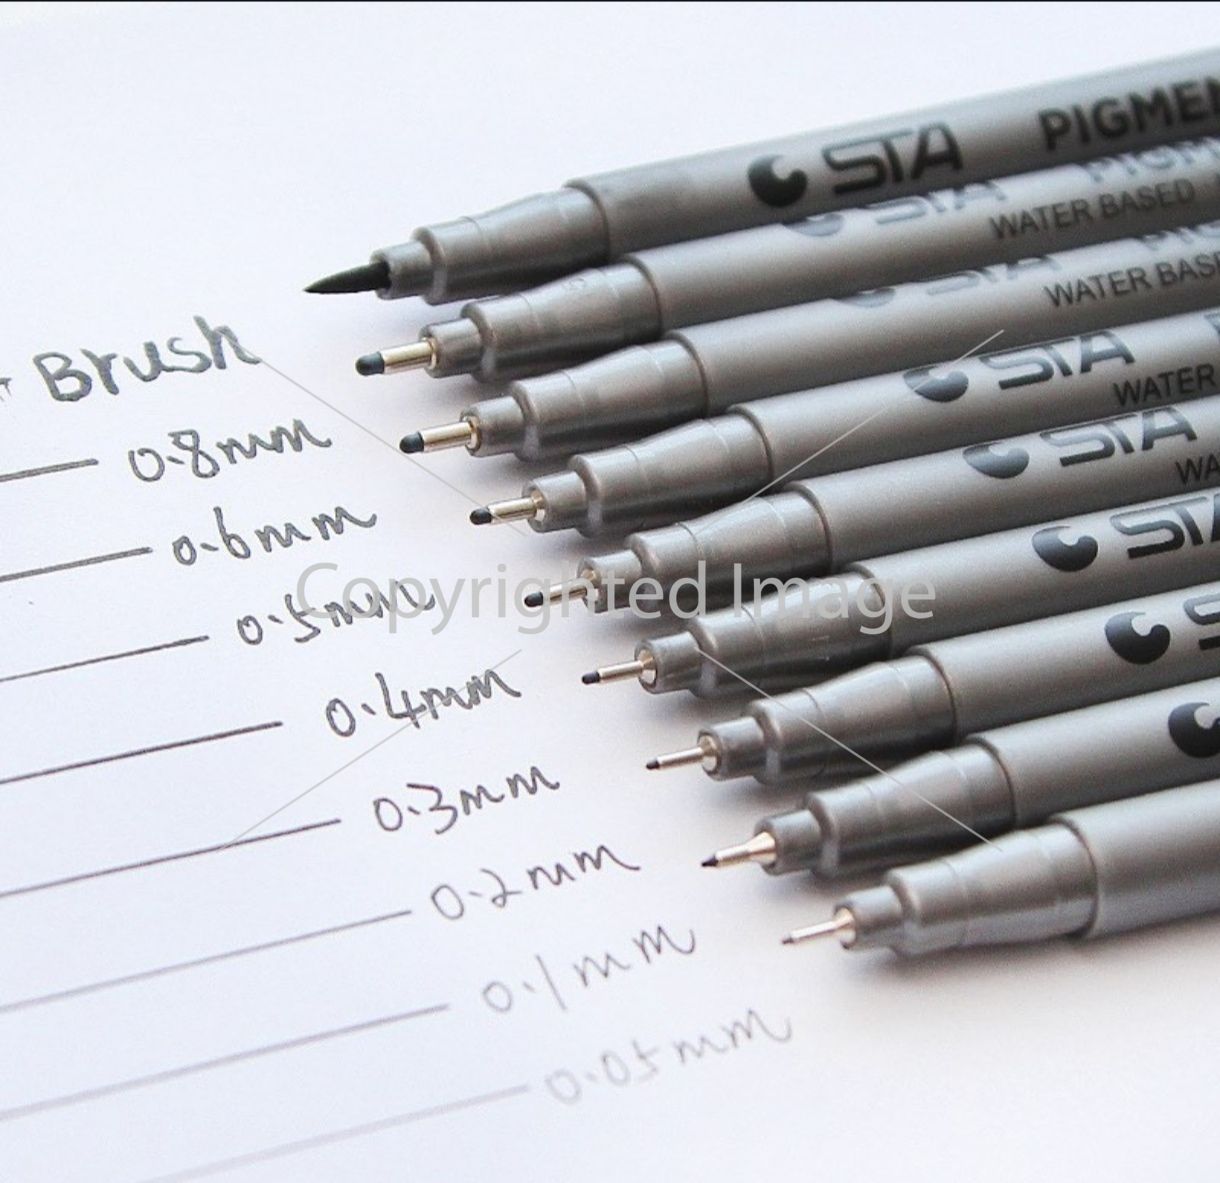 STA PIGMEN
STA PIGM
WATER BASED
STA PIG
WATER BASE
STA
WATER
STA
WA
STA
S
Brush
0.8mm
0.6mm
0.5mm
0.4mm
0.3mm
0.2mm
0.1mm
0.05mm
Copyrighted Image